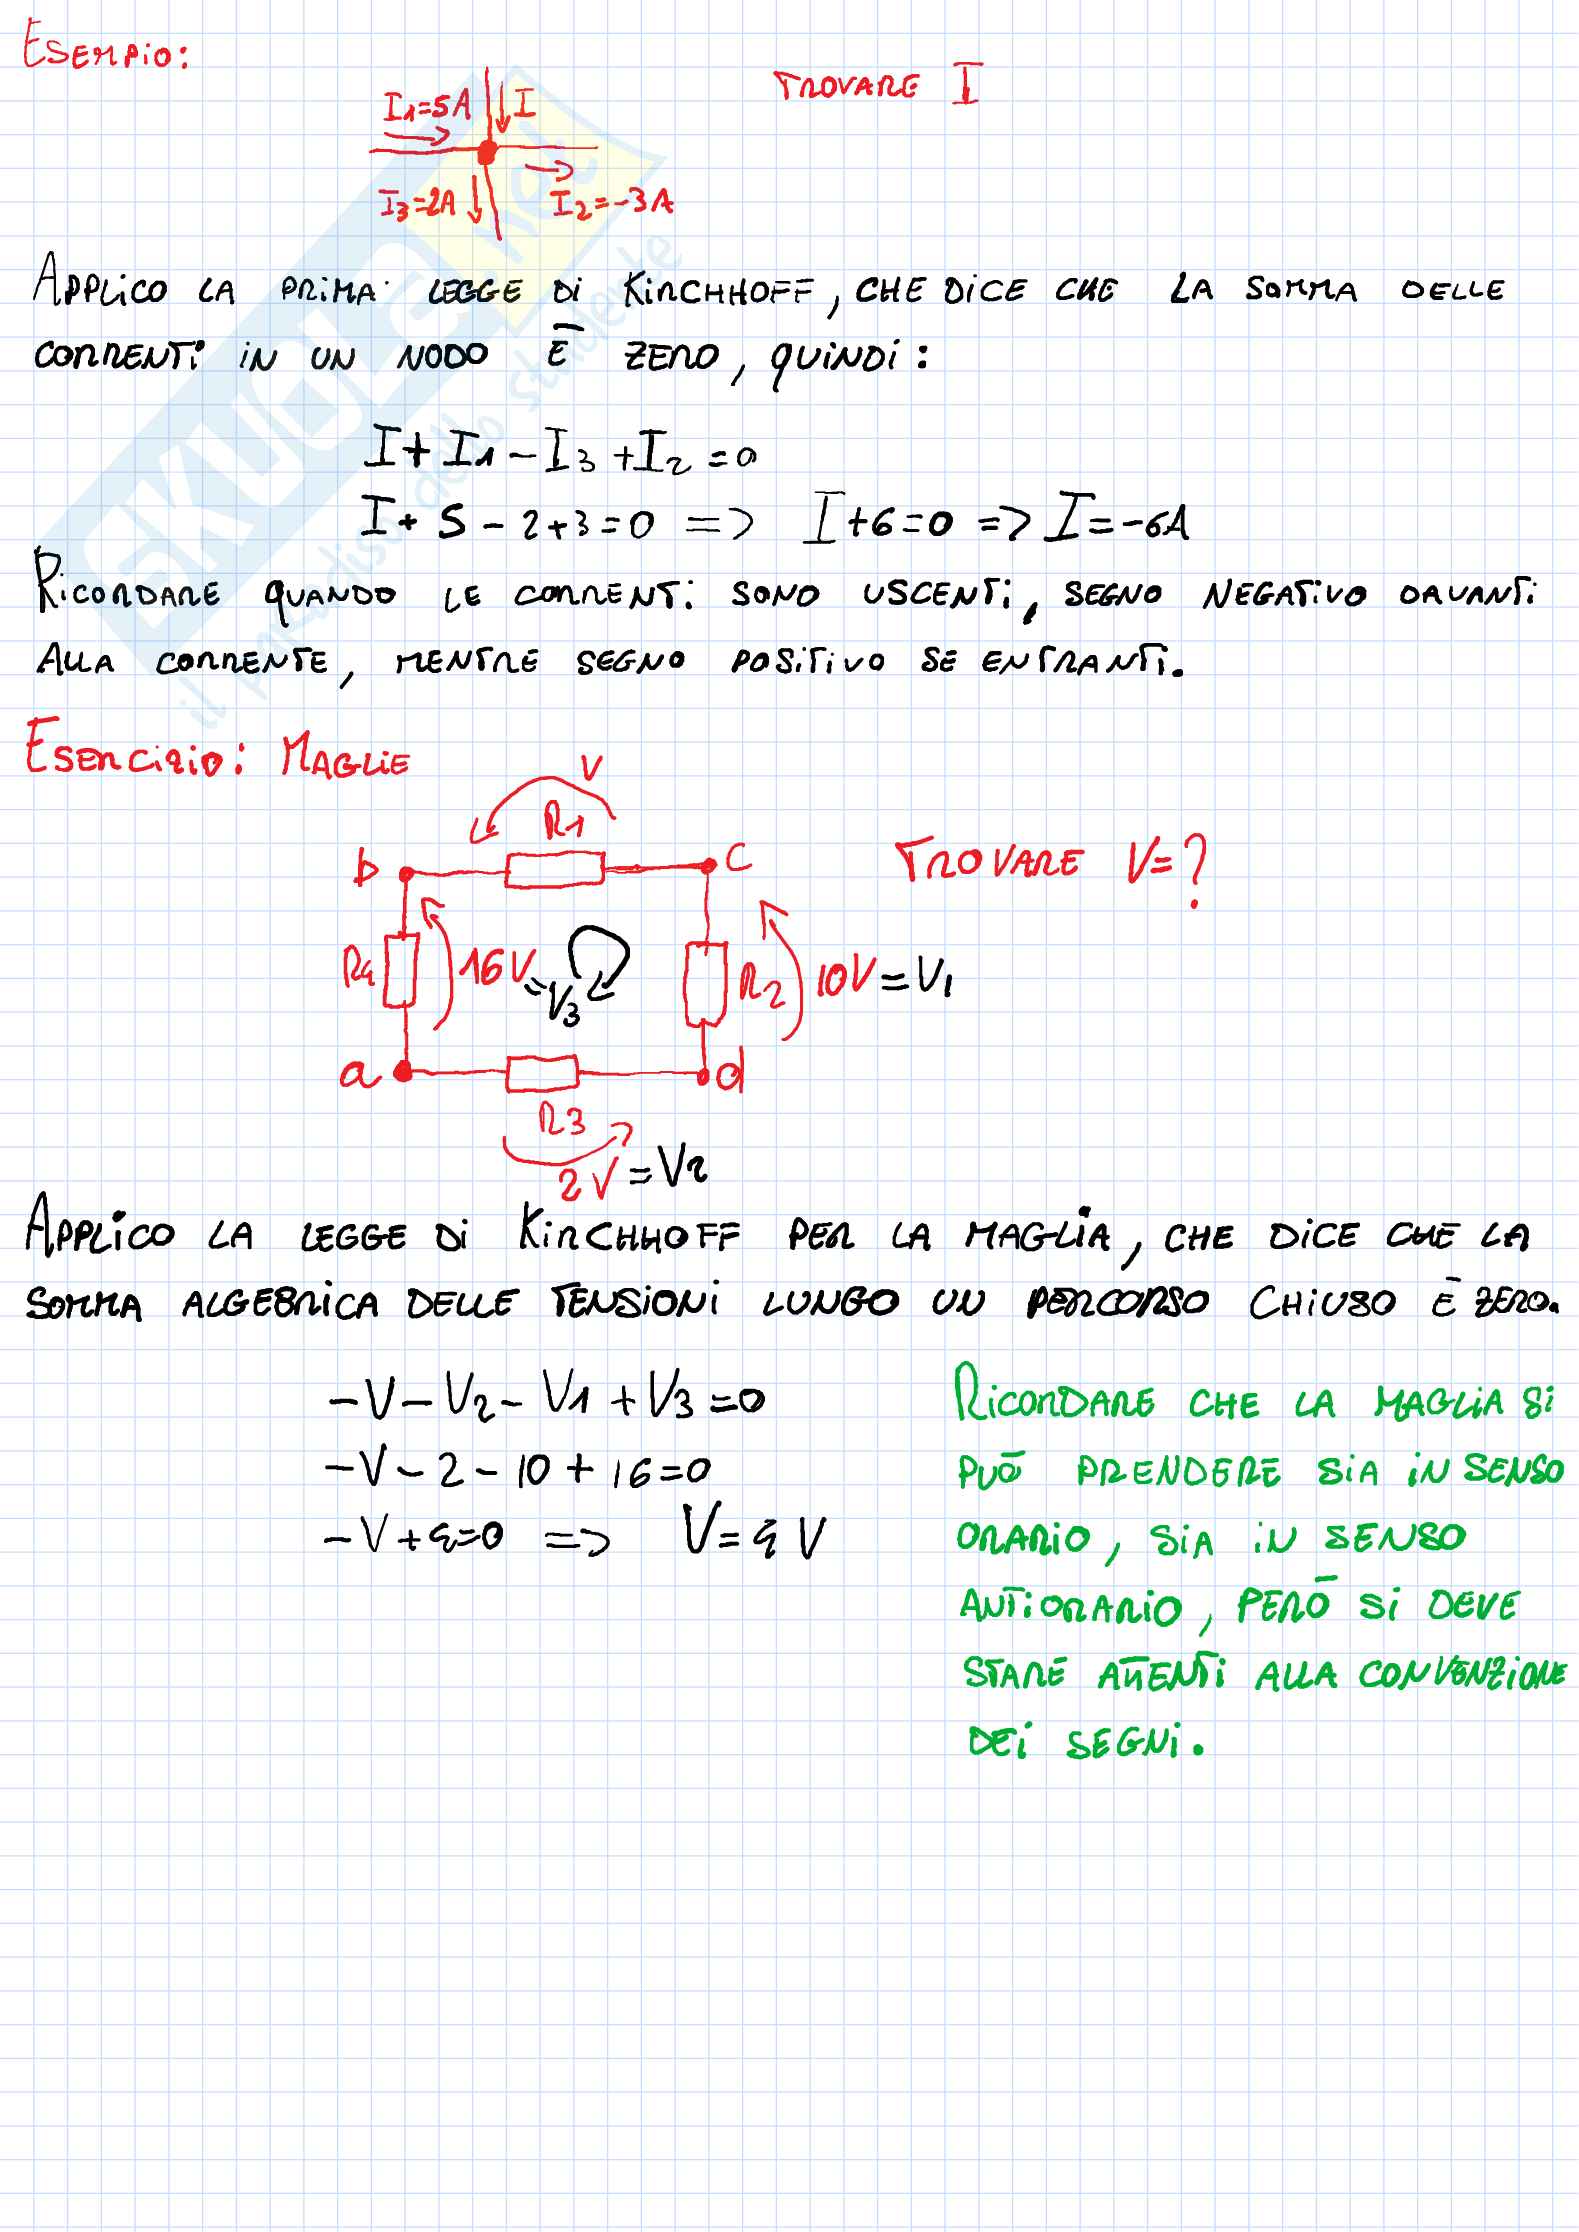 ESEMPIO:
TROVARE I
I1=5A
I
I3=2A
I2=-3A
APPLICO LA PRIMA LEGGE DI KIRCHHOFF, CHE DICE CHE LA SOMMA DELLE
CORRENTI IN UN NODO È ZERO, QUINDI:
I+I1-I3+I2=0
I+5-2+3=0 => I+6=0 => I=-6A
RICORDARE QUANDO LE CORRENTI SONO USCENTI, SEGNO NEGATIVO DAVANTI
ALLA CORRENTE, MENTRE SEGNO POSITIVO SE ENTRANTI.
ESERCIZIO: MAGLIE
V
R1
b
c
TROVARE V=?
R4
16V=V3
R2
10V=V1
a
d
R3
2V=V2
APPLICO LA LEGGE DI KIRCHHOFF PER LA MAGLIA, CHE DICE CHE LA
SOMMA ALGEBRICA DELLE TENSIONI LUNGO UN PERCORSO CHIUSO È ZERO.
-V-V2-V1+V3=0
-V-2-10+16=0
-V+4=0 => V=4V
RICORDARE CHE LA MAGLIA SI
PUÒ PRENDERE SIA IN SENSO
ORARIO, SIA IN SENSO
ANTIORARIO, PERÒ SI DEVE
STARE ATTENTI ALLA CONVENZIONE
DEI SEGNI.
SKUOLA.net
il paradiso dello studente